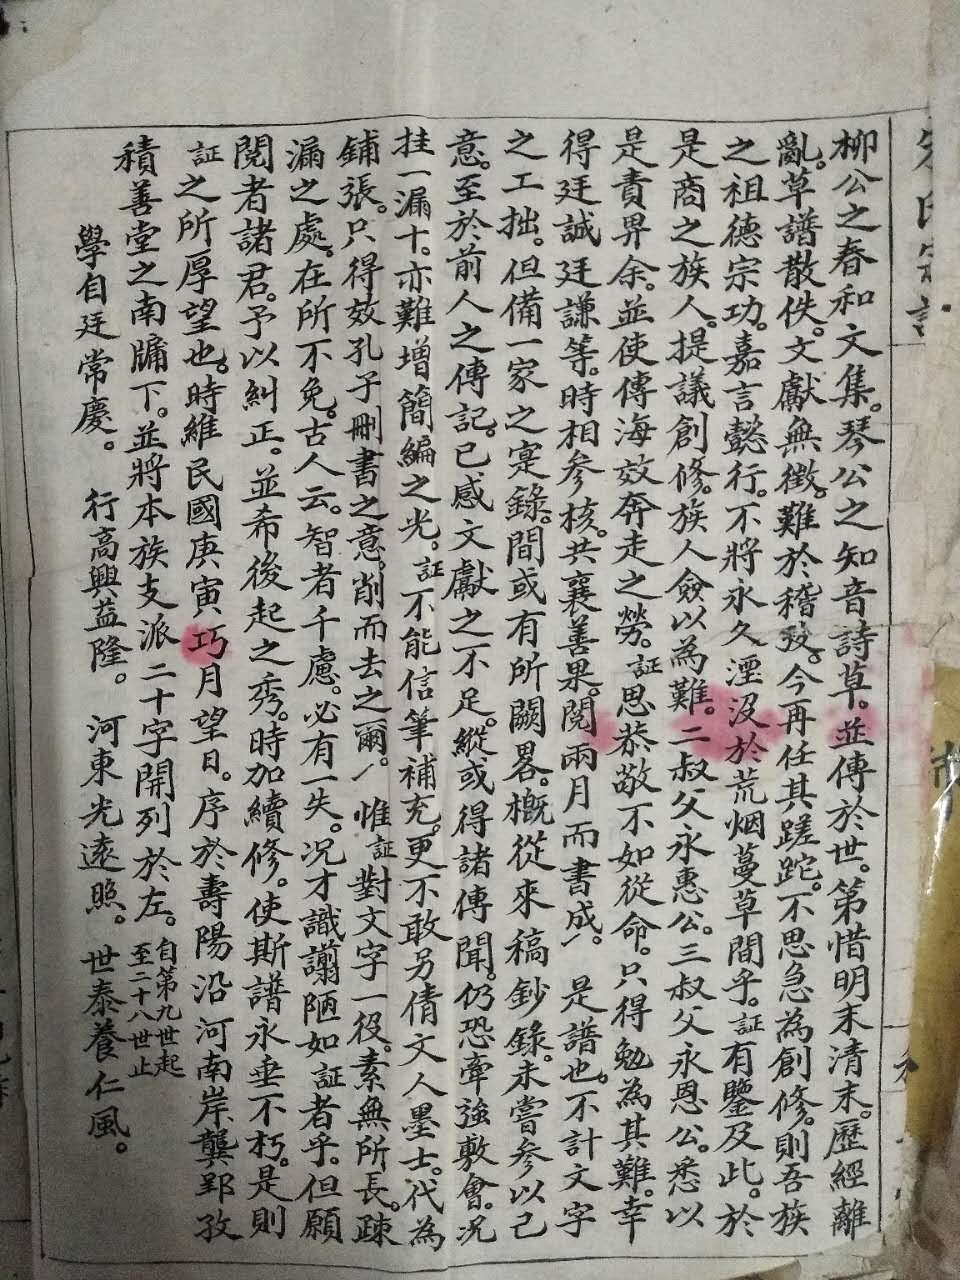 柳公之春和文集。琴公之知音詩草。並傳於世。第惜明末清末。歷經離
亂。草譜散佚。文獻無徵。難於稽攷。今再任其蹉跎。不思急為創修。則吾族
之祖德宗功。嘉言懿行。不將永久湮沒於荒烟蔓草間乎。証有鑒及此。於
是商之族人。提議創修。族人僉以為難。二叔父永惠公。三叔父永恩公。悉以
是責畀余。並使傳海效奔走之勞。証思恭敬不如從命。只得勉為其難。幸
得廷誠廷謙等。時相參核。共襄善果。閱兩月而書成。是譜也。不計文字
之工拙。但備一家之寔錄。間或有所闕畧。概從來稿鈔錄。未嘗參以己
意。至於前人之傳記。已感文獻之不足。縱或得諸傳聞。仍恐牽強敷會。况
挂一漏十。亦難增簡編之光。証不能信筆補充。更不敢另倩文人墨士。代為
鋪張。只得效孔子刪書之意。削而去之爾。惟証對文字一役。素無所長。疎
漏之處。在所不免。古人云。智者千慮。必有一失。况才識譾陋如証者乎。但願
閱者諸君。予以糾正。並希後起之秀。時加續修。使斯譜永垂不朽。是則
証之所厚望也。時維民國庚寅巧月望日。序於壽陽沿河南岸龔郢孜
積善堂之南牖下。並將本族支派二十字開列於左。自第九世起至二十八世止
學自廷常慶。行高興益隆。河東光遠照。世泰養仁風。